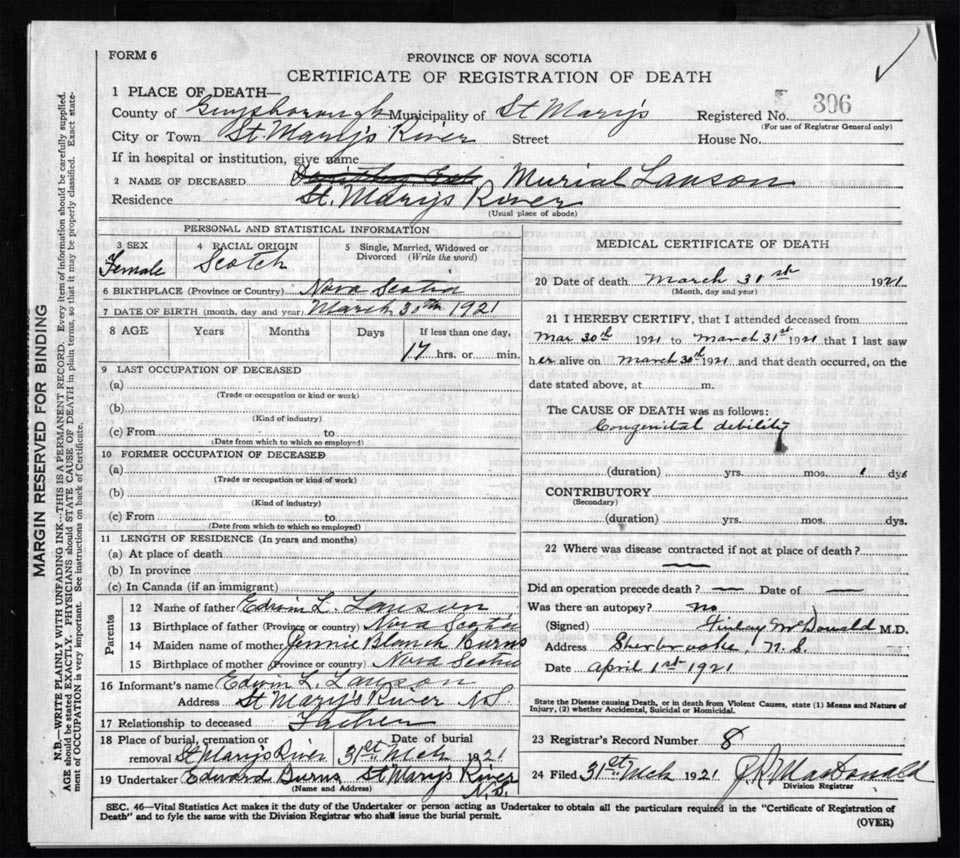 FORM 6
PROVINCE OF NOVA SCOTIA
CERTIFICATE OF REGISTRATION OF DEATH
1 PLACE OF DEATH—
County of Guysborough Municipality of St Mary's Registered No. 306
(For use of Registrar General only)
City or Town St. Mary's River Street House No.
If in hospital or institution, give name
2 NAME OF DECEASED Murial Lawson
Residence St. Mary's River
(Usual place of abode)
PERSONAL AND STATISTICAL INFORMATION
3 SEX 4 RACIAL ORIGIN 5 Single, Married, Widowed or Divorced (Write the word)
Female Scotch
6 BIRTHPLACE (Province or Country) Nova Scotia
7 DATE OF BIRTH (month, day and year) March 30th 1921
8 AGE Years Months Days If less than one day,
17 hrs. or min.
9 LAST OCCUPATION OF DECEASED
(a)
(Trade or occupation or kind or work)
(b)
(Kind of industry)
(c) From to
(Date from which to which so employed)
10 FORMER OCCUPATION OF DECEASED
(a)
(Trade or occupation or kind of work)
(b)
(Kind of industry)
(c) From to
(Date from which to which so employed)
11 LENGTH OF RESIDENCE (In years and months)
(a) At place of death
(b) In province
(c) In Canada (if an immigrant)
Parents
12 Name of father Edwin L. Lawson
13 Birthplace of father (Province or country) Nova Scotia
14 Maiden name of mother Jennie Blanch Burns
15 Birthplace of mother (Province or country) Nova Scotia
16 Informant's name Edwin L. Lawson
Address St Mary's River N.S.
17 Relationship to deceased Father
18 Place of burial, cremation or removal St Mary's River Date of burial 31st Mch 1921
19 Undertaker Edward Burns St Mary's River N.S.
(Name and Address)
MEDICAL CERTIFICATE OF DEATH
20 Date of death March 31st 1921
(Month, day and year)
21 I HEREBY CERTIFY, that I attended deceased from
Mar 30th 1921 to March 31st 1921 that I last saw
her alive on March 30th 1921 and that death occurred, on the
date stated above, at m.
The CAUSE OF DEATH was as follows:
Congenital debility
(duration) yrs. mos. 1 dys
CONTRIBUTORY
(Secondary)
(duration) yrs. mos. dys.
22 Where was disease contracted if not at place of death?
—
Did an operation precede death? — Date of —
Was there an autopsy? no
(Signed) Finlay McDonald M.D.
Address Sherbrooke, N.S.
Date April 1st 1921
State the Disease causing Death, or in death from Violent Causes, state (1) Means and Nature of
Injury, (2) whether Accidental, Suicidal or Homicidal.
23 Registrar's Record Number 8
24 Filed 31st Mch 1921 J.R. MacDonald
Division Registrar
SEC. 46—Vital Statistics Act makes it the duty of the Undertaker or person acting as Undertaker to obtain all the particulars required in the "Certificate of Registration of
Death" and to fyle the same with the Division Registrar who shall issue the burial permit.
(OVER)
MARGIN RESERVED FOR BINDING
N.B.—WRITE PLAINLY WITH UNFADING INK—THIS IS A PERMANENT RECORD. Every item of information should be carefully supplied.
AGE should be stated EXACTLY. PHYSICIANS should STATE CAUSE OF DEATH in plain terms, so that it may be properly classified. Exact state-
ment of OCCUPATION is very important. See instructions on back of Certificate.